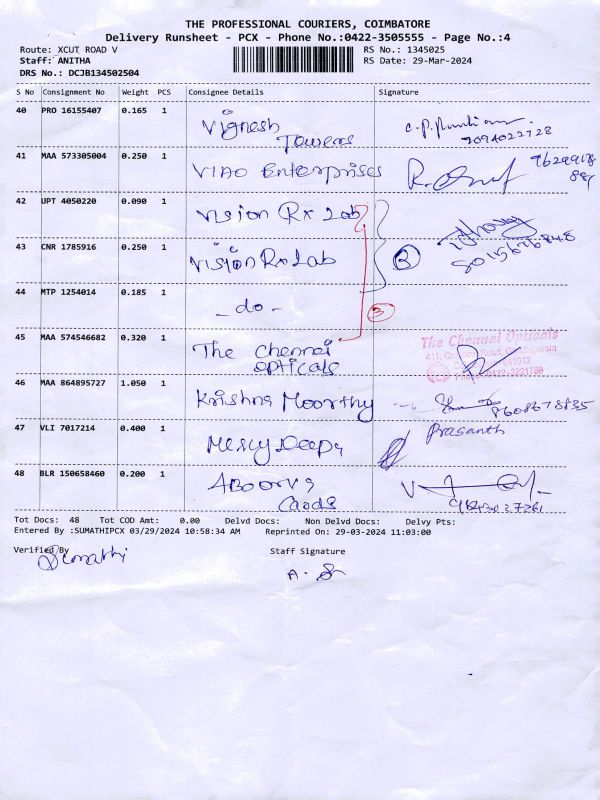 THE PROFESSIONAL COURIERS, COIMBATORE
Delivery Runsheet - PCX - Phone No.:0422-3505555 - Page No.:4
Route: XCUT ROAD V RS No.: 1345025
Staff: ANITHA RS Date: 29-Mar-2024
DRS No.: DCJB134502504
S No Consignment No Weight PCS Consignee Details Signature
40 PRO 16155407 0.165 1 Vignesh Towers
7094022728
41 MAA 573305004 0.250 1 VIAO Enterprises
42 UPT 4050220 0.090 1 Vision Rx Lab
43 CNR 1785916 0.250 1 Vision Rx Lab
44 MTP 1254014 0.185 1 - do -
3
45 MAA 574546682 0.320 1 The Chennai opticals
The Chennai Opticals
46 MAA 864895727 1.050 1 Krishna Moorthy
8608678835
47 VLI 7017214 0.400 1 Mercy Deepa
Prasanth
48 BLR 150658460 0.200 1 Aboorva Cards
Tot Docs: 48 Tot COD Amt: 0.00 Delvd Docs: Non Delvd Docs: Delvy Pts:
Entered By :SUMATHIPCX 03/29/2024 10:58:34 AM Reprinted On: 29-03-2024 11:03:00
Verified By Staff Signature